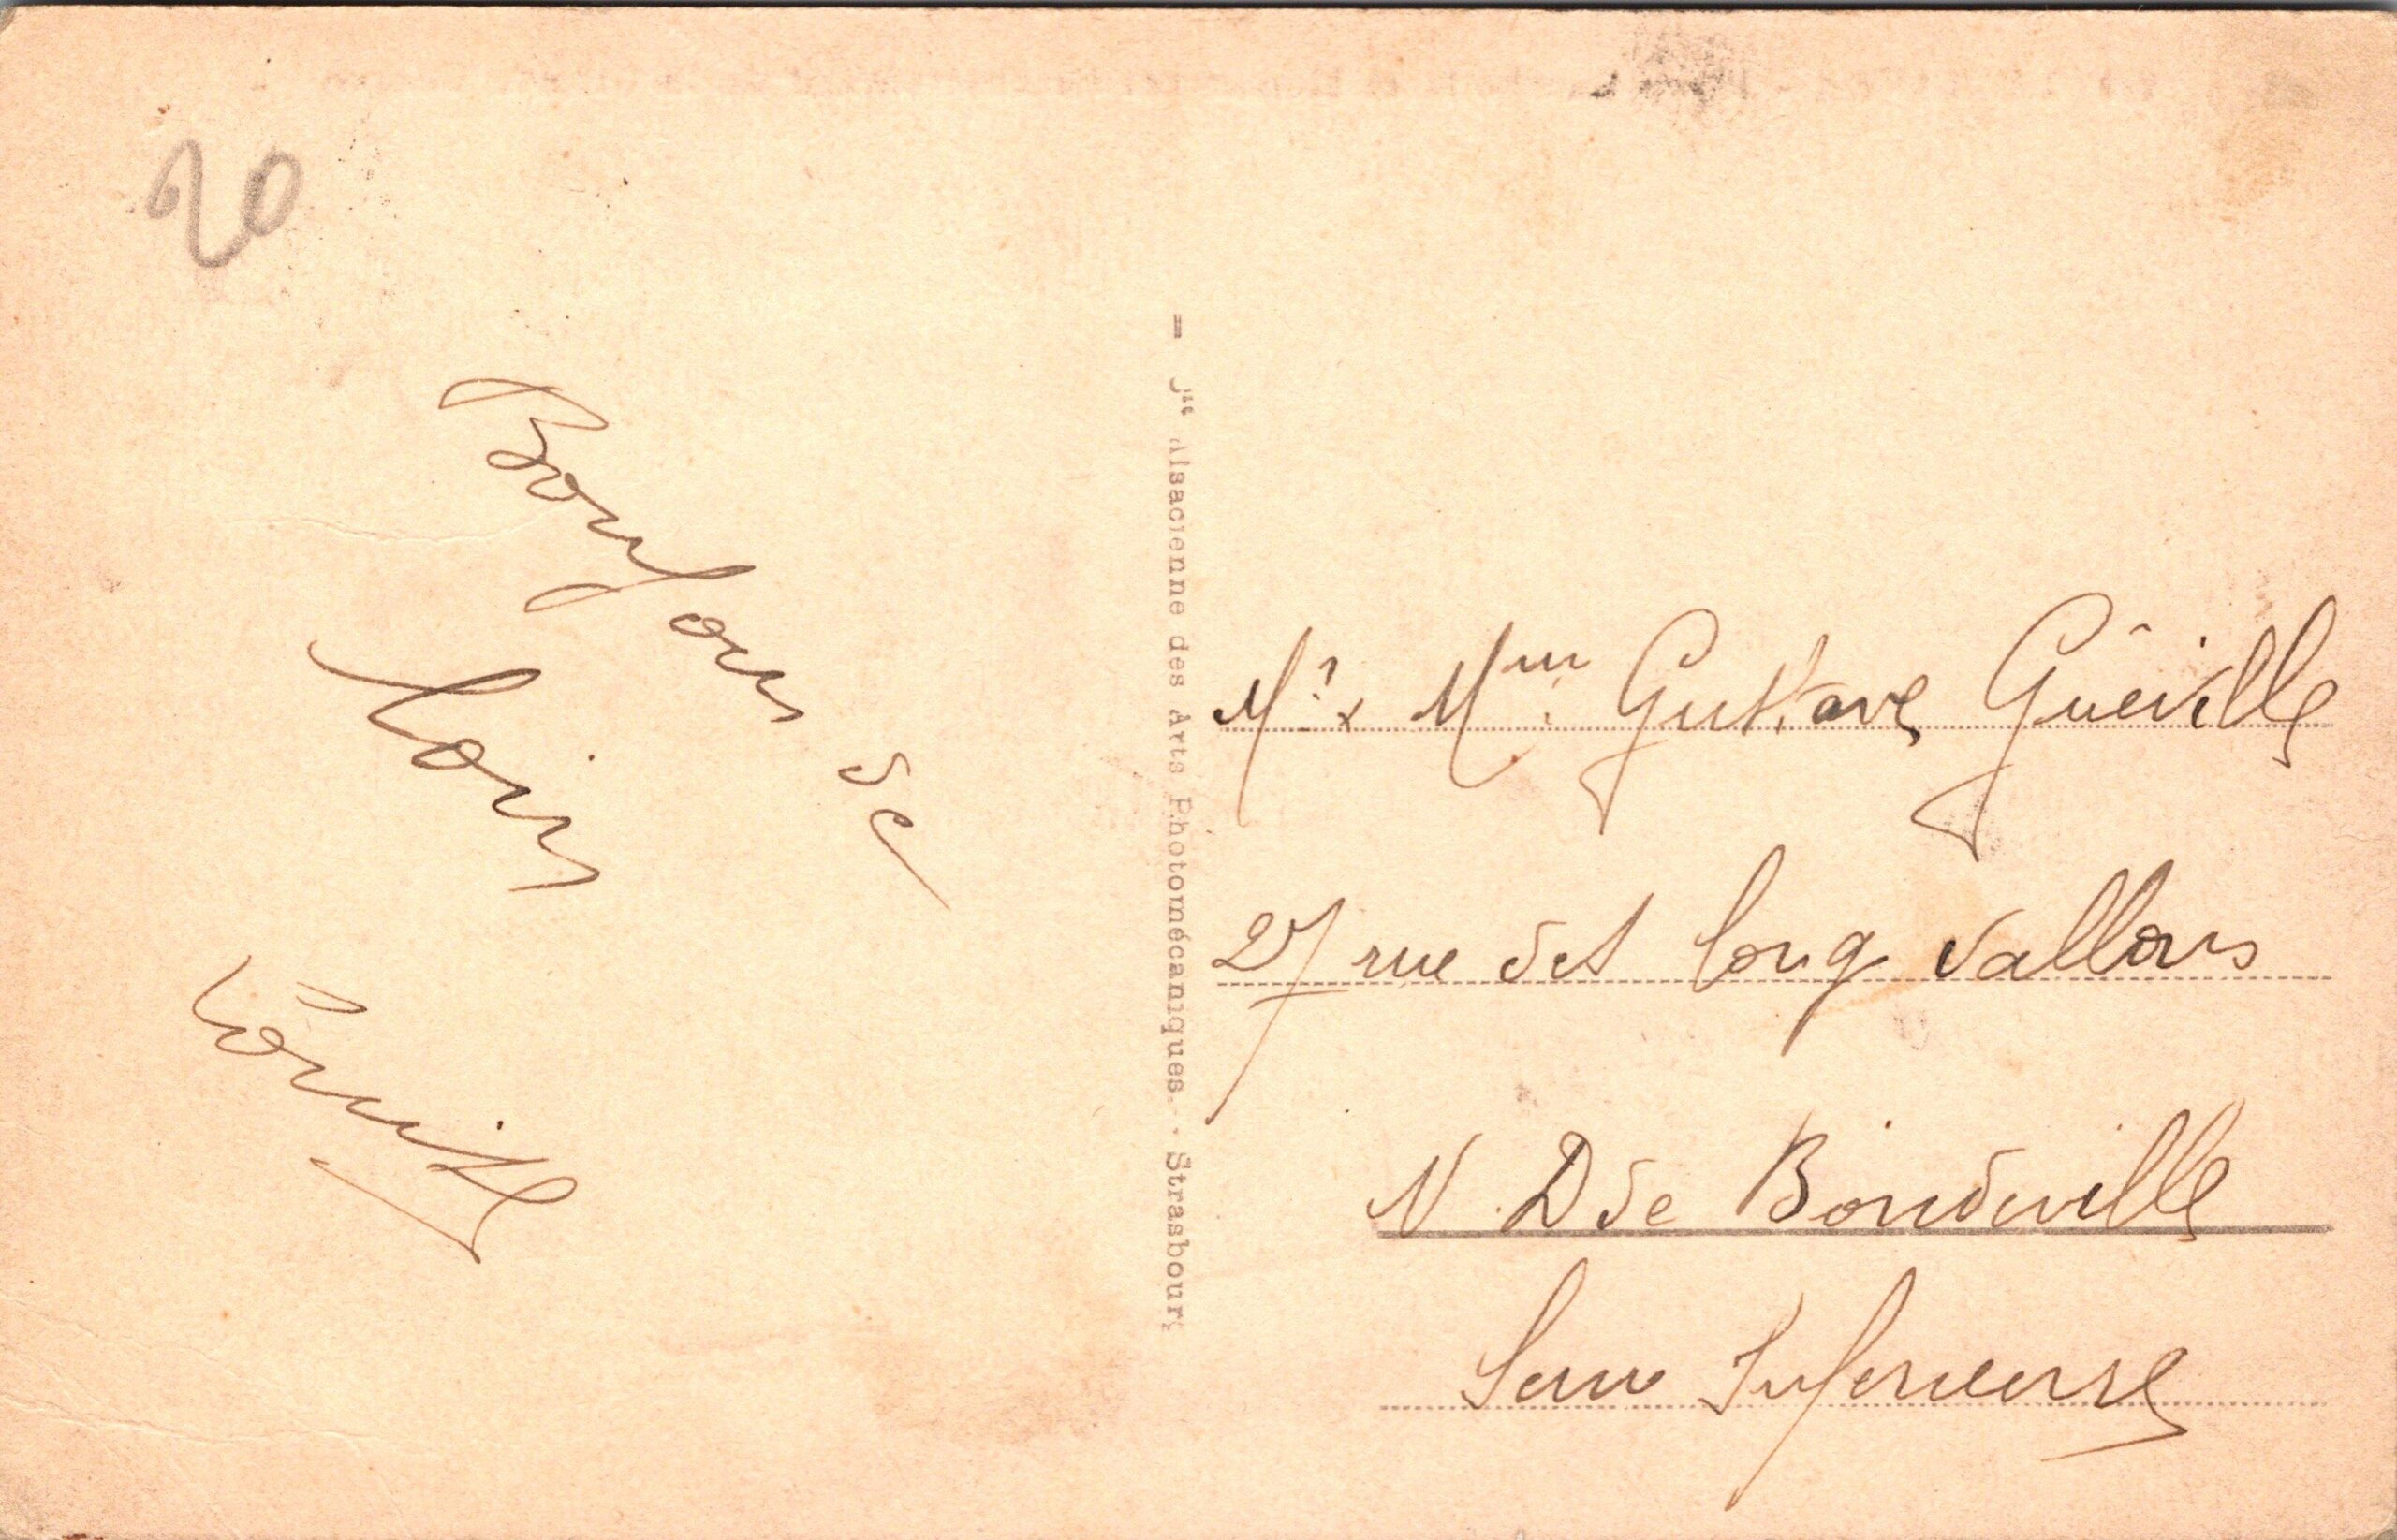 20
Bonjour de
Loin
Louise
Sté Alsacienne des Arts Photomécaniques. - Strasbourg
Mr & Mme Gustave Guéville
27 rue des long vallons
N. D de Bondeville
Seine Inferieure